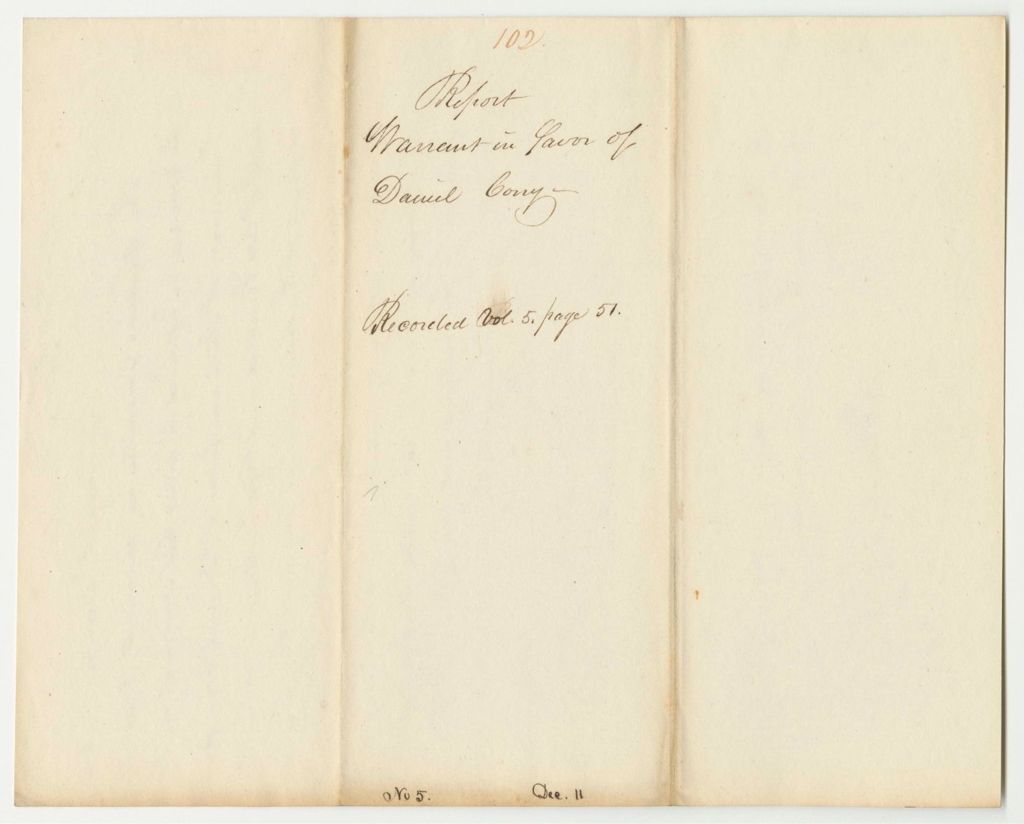 102.
Report
Warrant in favor of
Daniel Cony
Recorded Vol. 5. page 51.
No 5. Dec. 11